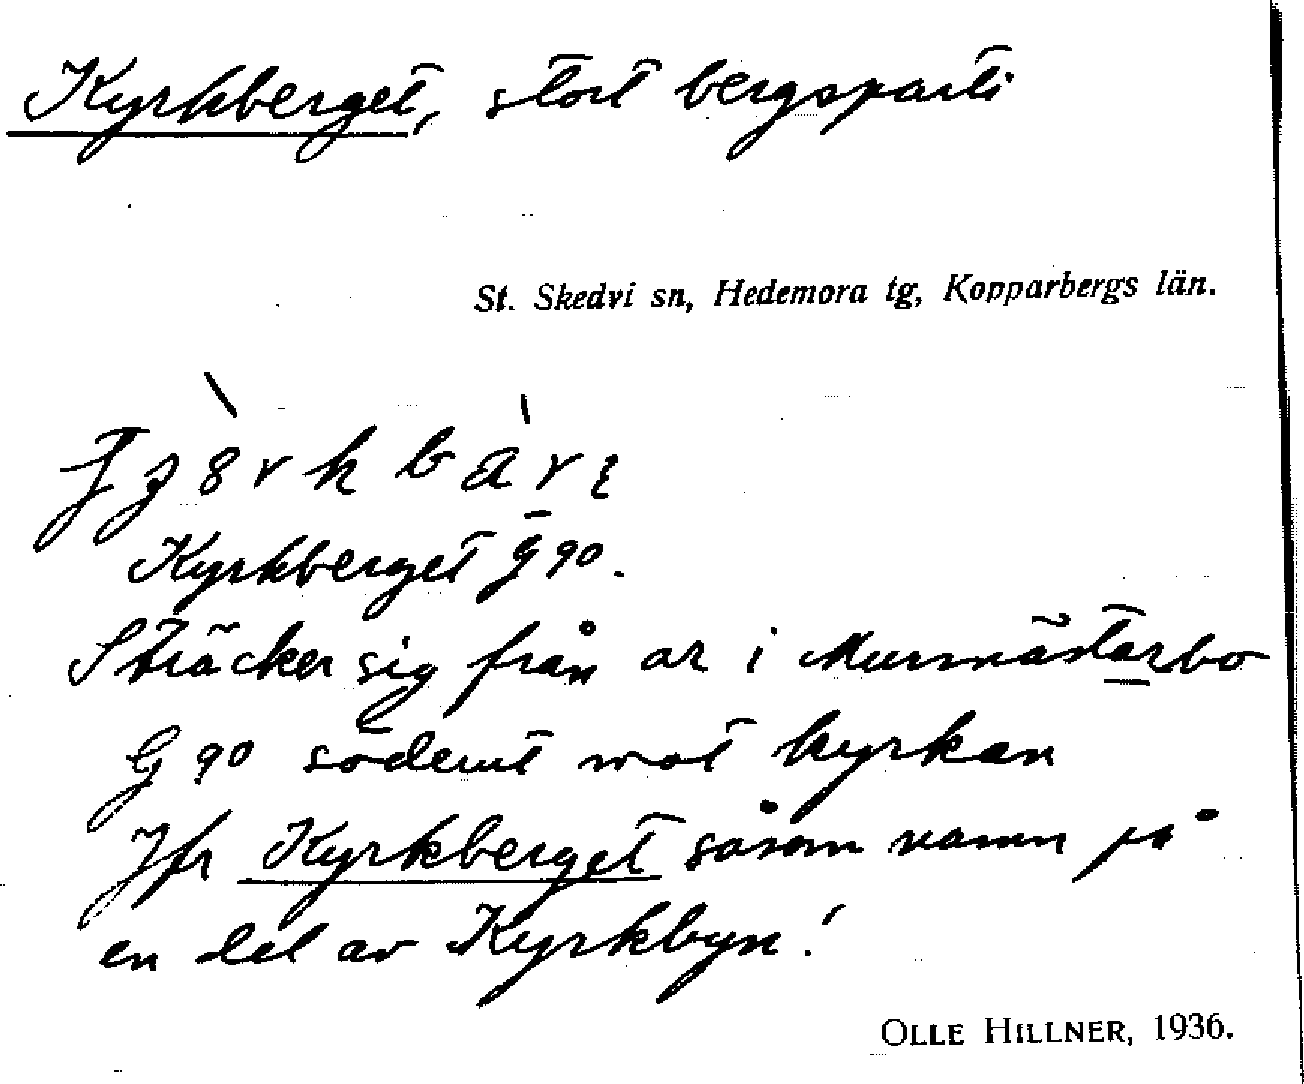 Kyrkberget, stort bergsparti
St. Skedvi sn, Hedemora tg, Kopparbergs län.
Kyrkberget G 90.
Sträcker sig från ar i Murmästarbo
G 90 söderut mot kyrkan
Jfr Kyrkberget såsom namn på
en del av Kyrkbyn!
OLLE HILLNER, 1936.